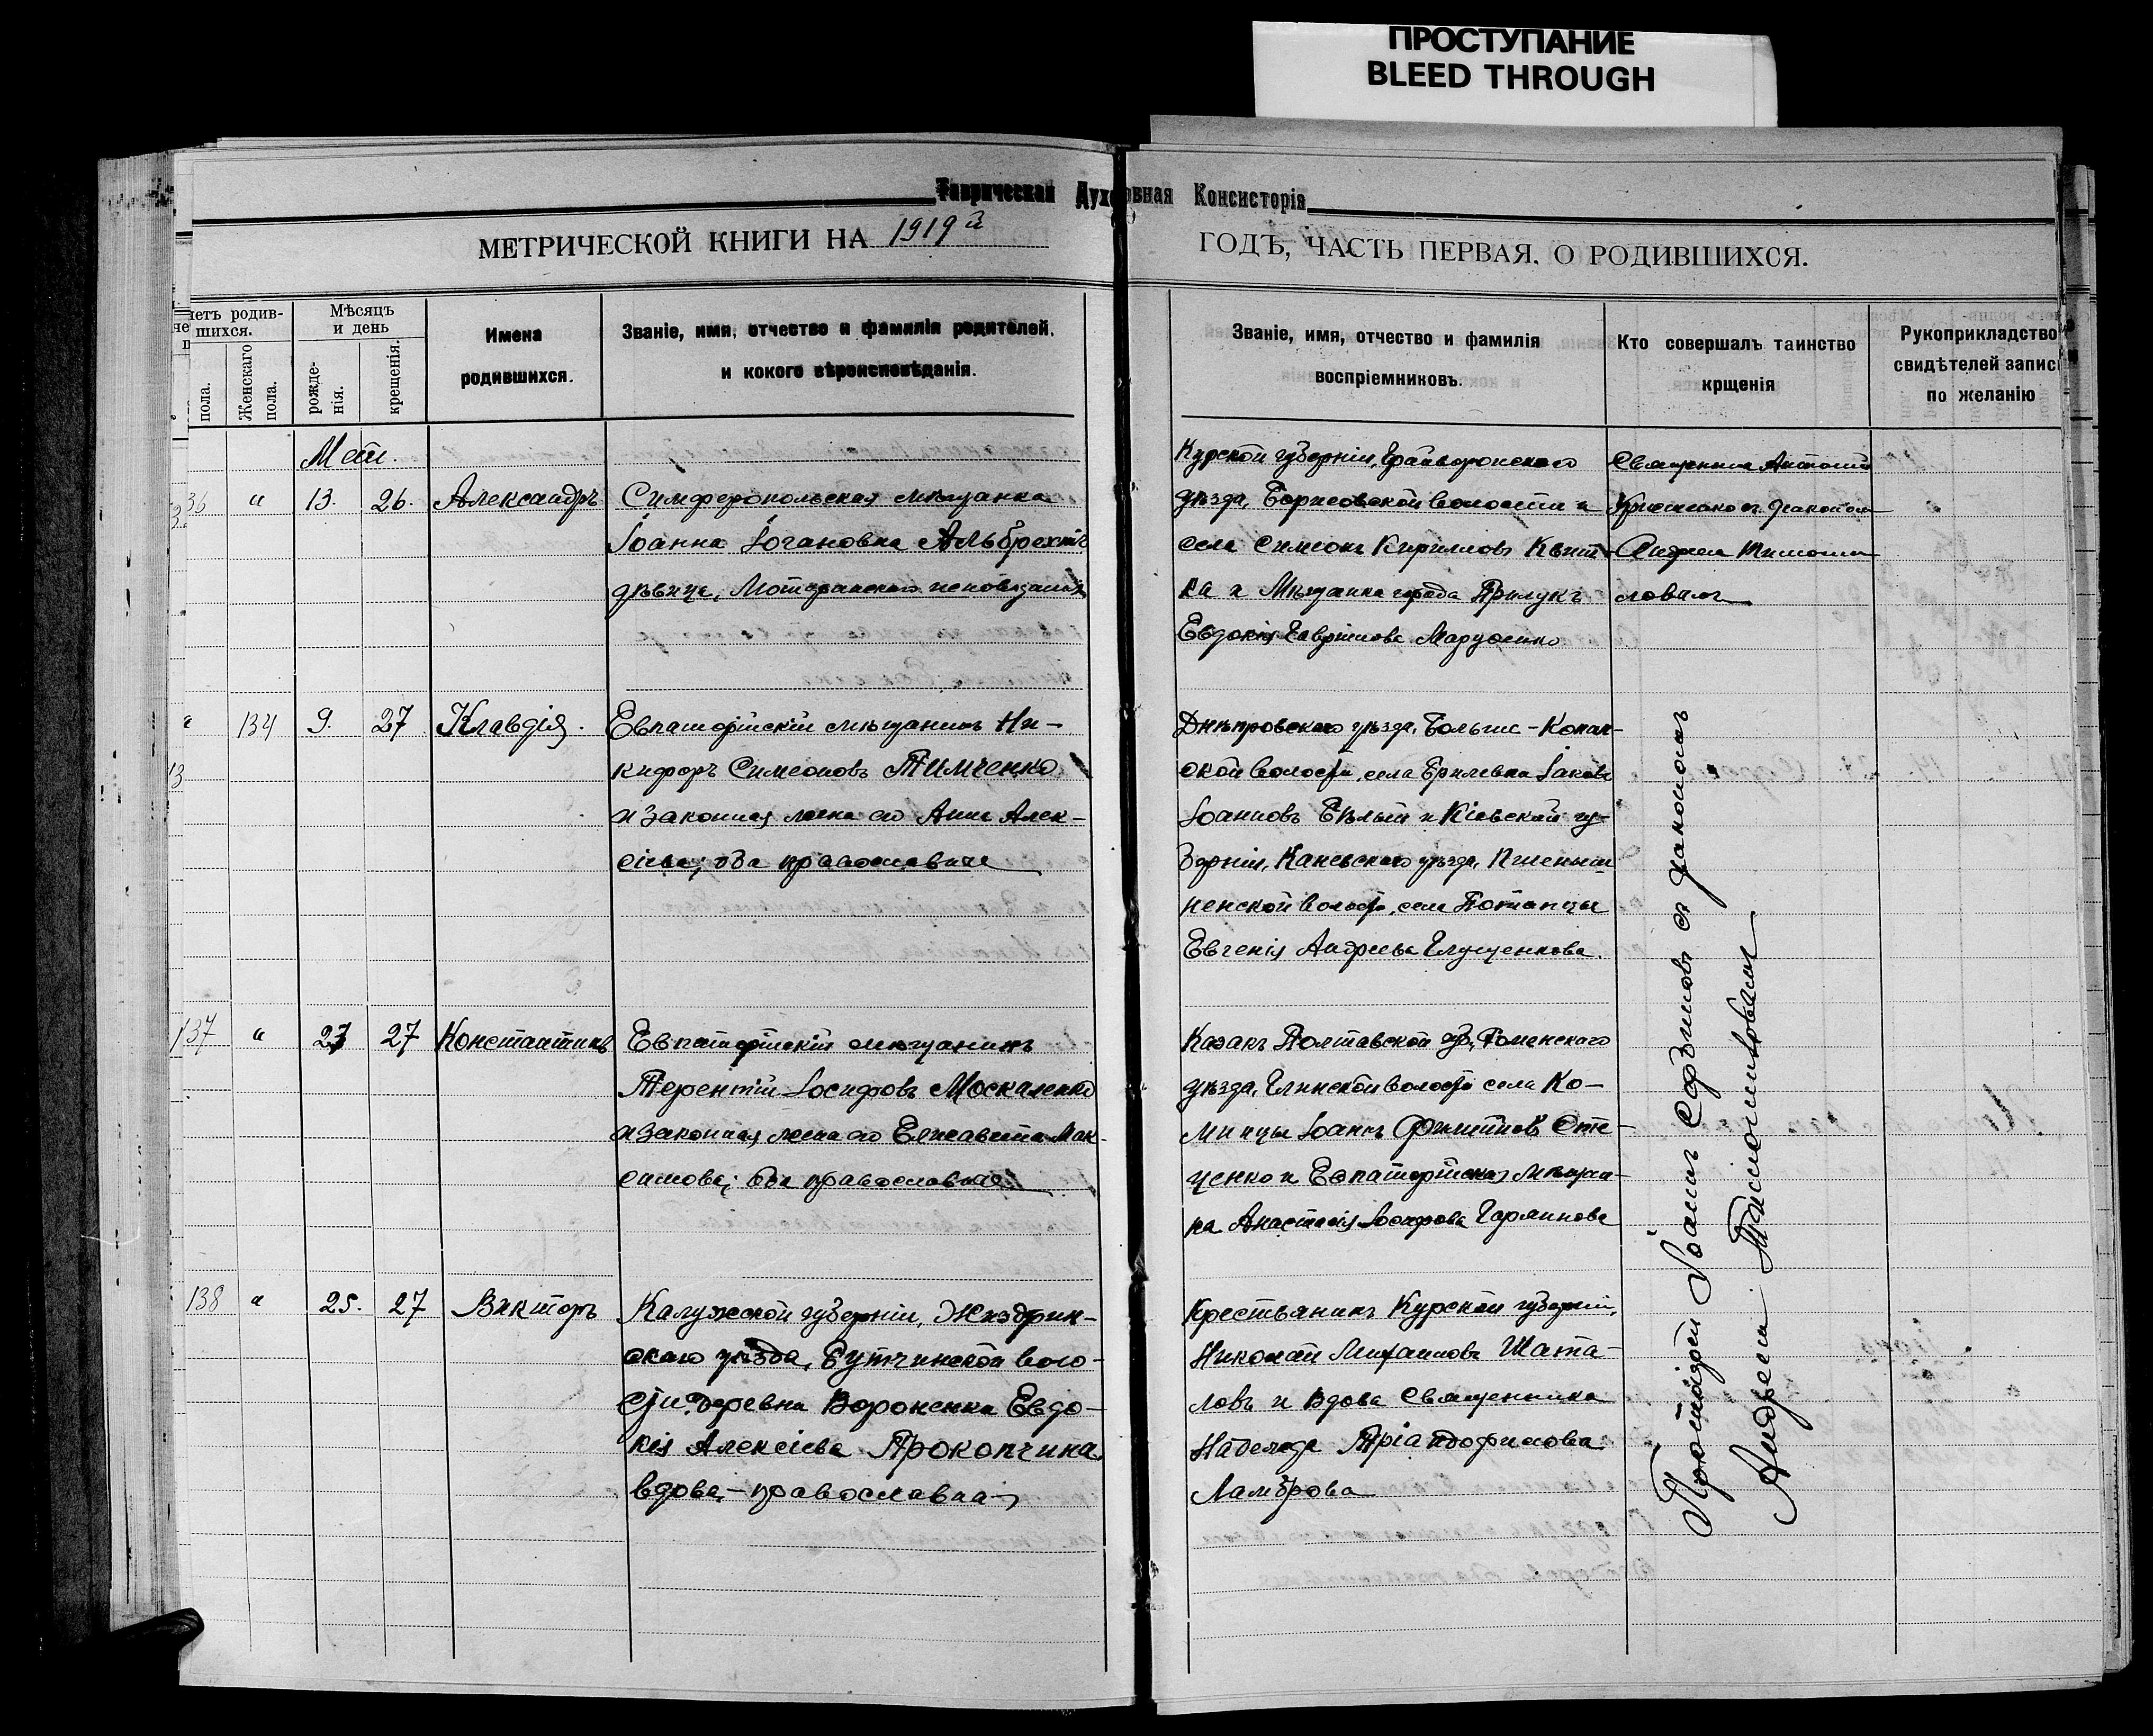 ПРОСТУПАНИЕ
BLEED THROUGH
Таврическая Духовная Консисторія
МЕТРИЧЕСКОЙ КНИГИ НА 1919й ГОДЪ, ЧАСТЬ ПЕРВАЯ, О РОДИВШИХСЯ.
четъ родив-
шихся.
пола.
Женскаго
пола.
Мѣсяцъ
и день
рожде-
нія.
крещенія.
Имена
родившихся.
Званіе, имя, отчество и фамилія родителей,
и кокого вѣроисповѣданія.
Званіе, имя, отчество и фамилія
воспріемниковъ.
Кто совершалъ таинство
крщенія
Рукоприкладство
свидѣтелей записи
по желанію
Май.
136 " 13. 26. Александръ
Симферопольская мѣщанка
Іоанна Іогановна Альбрехтъ
дѣвица, Лютеранскаго исповѣданія
Курской губерніи, Грайворонскаго
уѣзда, Борисовской волости и
села Симеонъ Кириловъ Квит-
ка и Мѣщанка города Прилукъ
Евдокія Гавріилова Марущенко
Священникъ Антоній
съ діакономъ
Андреем Тимоши-
ловымъ
" 134 9. 27 Клавдія.
Евпаторійскій мѣщанинъ Ни-
кифоръ Симеоновъ Тимченко
и законная жена его Анна Алек-
сіева; оба православные
Днѣпровскаго уѣзда, Больше-Копан-
ской волости, села Брилевка Іаковъ
Іоанновъ Бѣлый и Кіевской гу-
берніи, Каневскаго уѣзда,
ненской волости, села Потапцы
Евгенія Андреева Глущенкова.
137 " 23 27 Константинъ
Евпаторійскій мѣщанинъ
Терентій Іосифовъ Москаленко
и законная жена его Елисавета Мак-
симова; оба православные
Казакъ Полтавской губ., Роменскаго
уѣзда, Глинской волости села Ко-
минцы Іоаннъ Филипповъ Оте-
ценко и Евпаторійская мѣщан-
ка Анастасія Іосифова Горяинова
138 " 25. 27 Викторъ
Калужской губерніи, Жиздрин-
скаго уѣзда, Бутчинской воло-
сти деревни Вороненка Евдо-
кія Алексіева Прокопчина,
вдова, – православная
Крестьянинъ Курской губерніи,
Николай Михаиловъ Шата-
ловъ и вдова священника
Надежда Тріандофилова
Ламброва
Протоіерей Іоаннъ Сербиновъ съ діакономъ
Андреем Тимошиловымъ